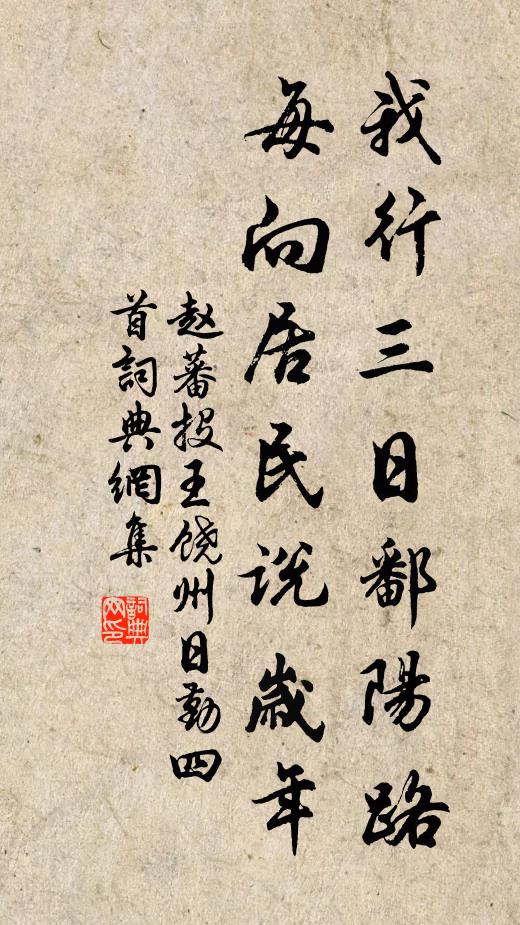 我行三日鄱陽路
每向居民说歳年
赵蕃投王饶州日勤四
首詞典網集
詞典網印